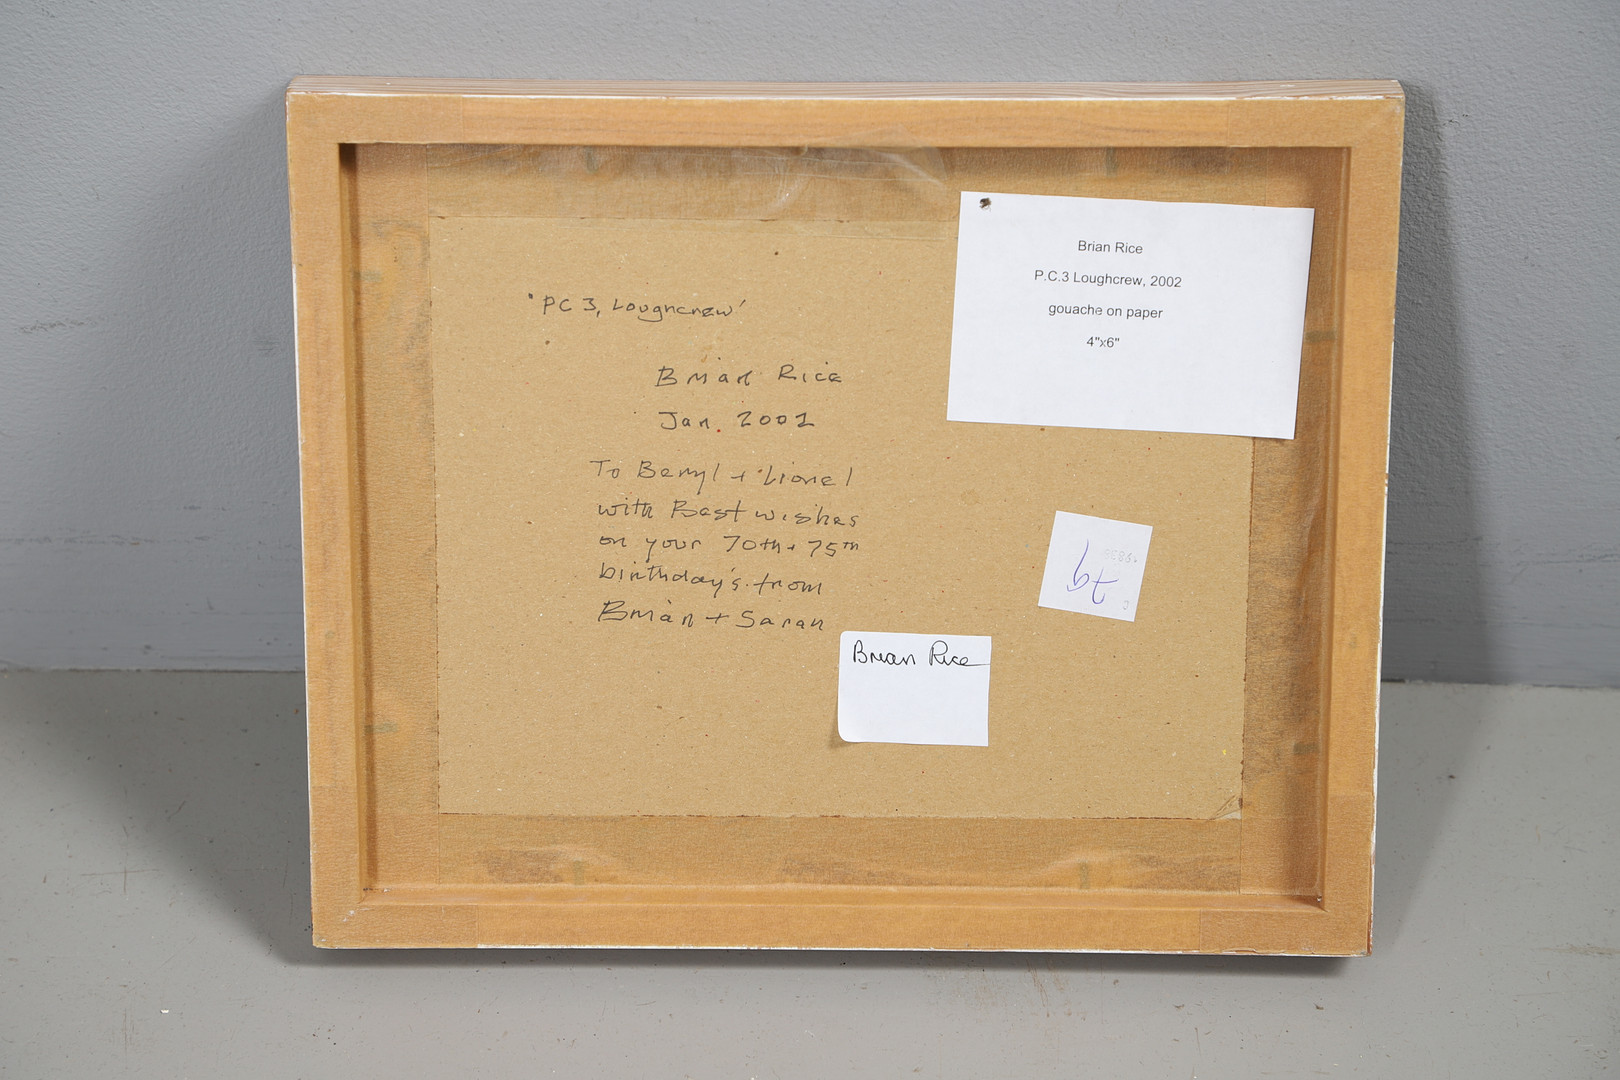 'PC 3, Loughcrew'
Brian Rice
Jan. 2002
To Beryl + Lionel
with Best wishes
on your 70th + 75th
birthday's from
Brian + Sarah
Brian Rice
P.C.3 Loughcrew, 2002
gouache on paper
4"x6"
Brian Rice